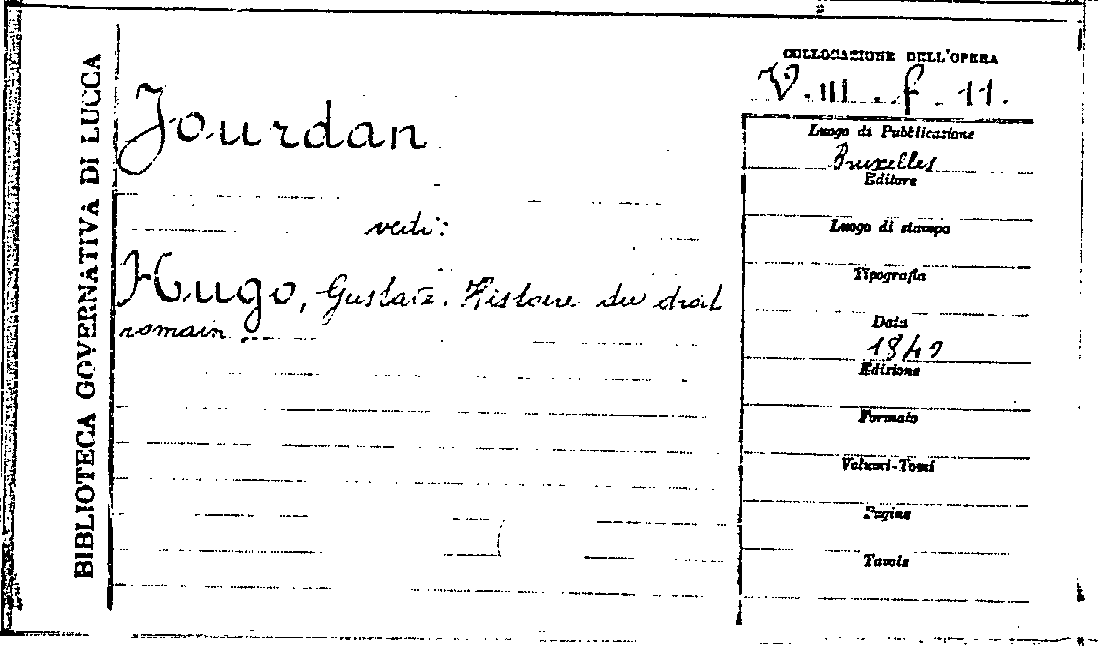 BIBLIOTECA GOVERNATIVA DI LUCCA
Jourdan
vedi:
Hugo, Gustave. Histoire du droit
romain ...
COLLOCAZIONE DELL'OPERA
V. III. f. 11.
Luogo di Pubblicazione
Bruxelles
Editore
Luogo di stampa
Tipografia
Data
1840
Edizione
Formato
Volumi-Tomi
Pagine
Tavole